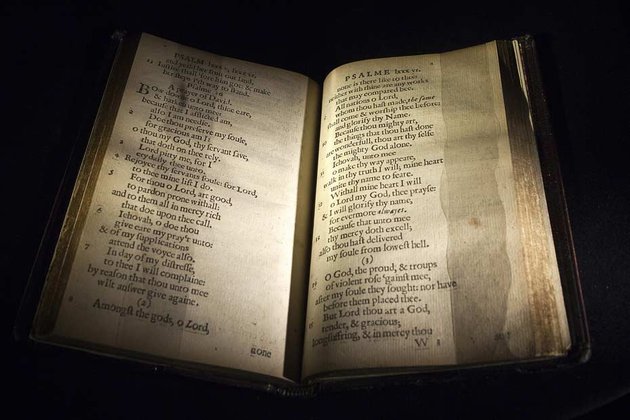 PSALME lxxxv, lxxxvi.
12 Justice shall
her steps i'th way to stand.
Psalme 86
A Prayer of David.
Bow downe o Lord thine eare,
& harken unto mee:
because I am afflicted am,
also I am needie.
2 Doe thou preserve my soule,
for gracious am I:
o thou my God, thy servant save,
that doth on thee rely.
3 Lord pitty me, for I
daily cry thee unto.
4 Rejoyce thy servants soule: for Lord,
to thee mine lift I do.
5 For thou o Lord, are good,
to pardon prone withall:
and to them all in mercy rich
that doe upon thee call.
6 Iehovah, o doe thou
give eare my pray'r unto:
& of my supplications
attend the voyce also.
7 In day of my distresse,
to thee I will complaine:
by reason that thou unto mee
wilt answer give againe.
(2)
8 Amongst the gods, o Lord,
none
PSALME lxxxvi.
none is there like to thee:
neither with thine are any works
that may compared bee.
9 All nations o Lord,
whom thou hast made, the same
shall come & worship thee before:
and glorify thy Name.
10 Because thou mighty art,
the things that thou hast done
are wonderfull, thou art thy selfe
the mighty God alone.
11 Iehovah, unto mee
o make thy way appeare,
walk in thy truth I will; mine heart
unite thy name to feare.
12 Withall mine heart I will
o Lord my God, thee prayse:
& I will glorify thy name,
for evermore alwayes.
13 Because that unto mee
thy mercy doth excell;
also thou hast delivered
my soule from lowest hell.
(3)
14 O God, the proud, & troups
of violent rose 'gainst mee,
after my soule they sought: nor have
before them placed thee.
15 But Lord thou art a God,
tender, & gracious;
longsuffring, & in mercy thou
W